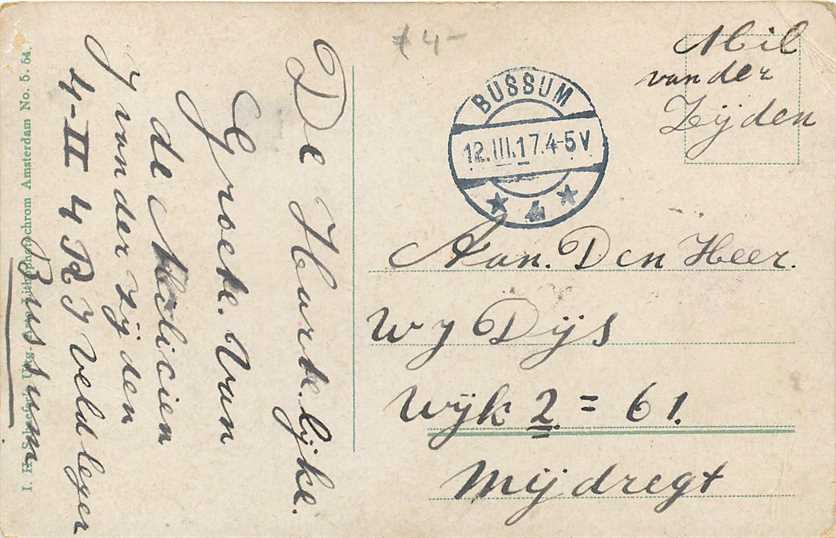 De Harte.lijke.
Groete. Van
de Milicien
J van der zijden
4-II 4 R J Veldleger
Bussum
I. H. Schaefer's Uitg. Amsterdam No. 5. 64.
7 4-
BUSSUM
12.III.17.4-5V
4
Mil
van der
Zijden
Aan. Den Heer.
W J Dijs
Wijk 2 = 61.
Mijdregt